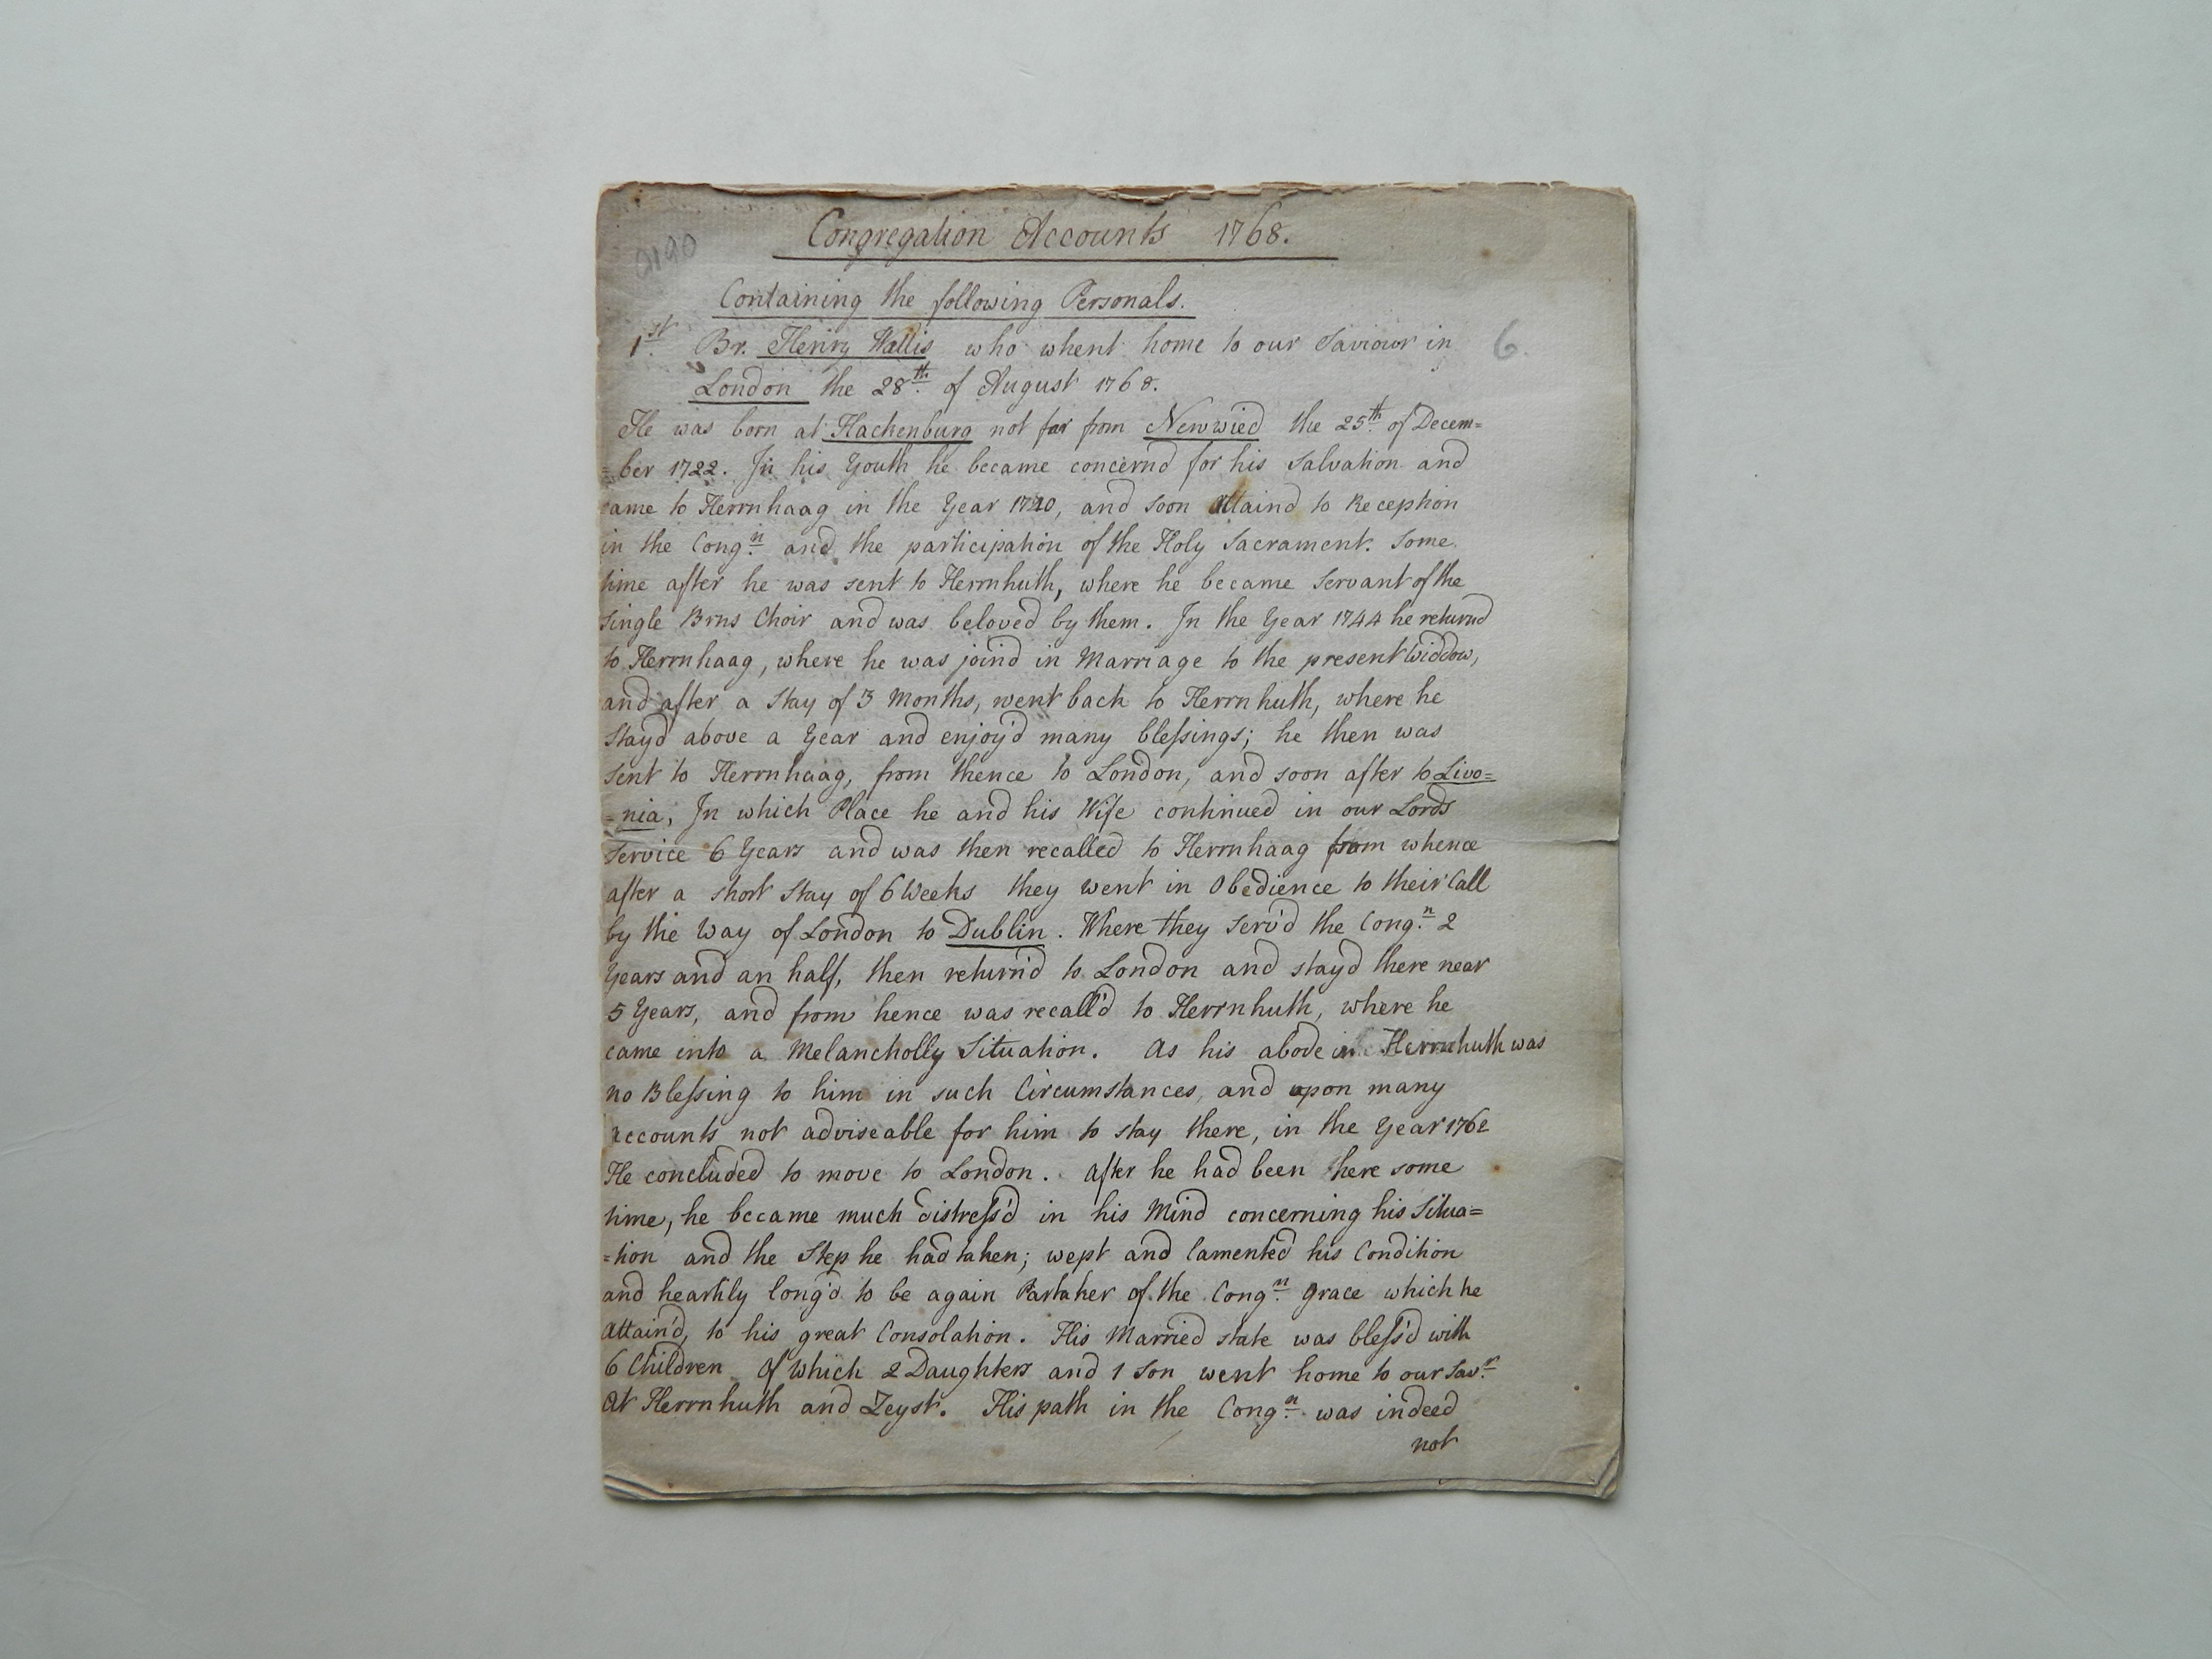 Congregation Accounts 1768.
Containing the following Personals.
1st. Br. Henry Wallis who whent home to our Saviour in 6.
London the 28th. of August 1768.
He was born at Hackenburg not far from Newwied the 25th. of Decem=
=ber 1722. In his Youth he became concernd for his Salvation and
came to Herrnhaag in the Year 1740, and soon attaind to Reception
in the Cong.n and the participation of the Holy Sacrament. Some
time after he was sent to Herrnhuth, where he became Servant of the
Single Brns Choir and was beloved by them. In the Year 1744 he returnd
to Herrnhaag, where he was joind in Marriage to the present Widdow,
and after a Stay of 3 Months, went back to Herrnhuth, where he
Stay'd above a Year and enjoy'd many blessings; he then was
Sent to Herrnhaag, from thence to London, and soon after to Livo=
=nia; In which Place he and his Wife continued in our Lords
Service 6 Years and was then recalled to Herrnhaag from whence
after a short Stay of 6 Weeks they went in Obedience to their Call
by the Way of London to Dublin. Where they Serv'd the Cong.n 2
Years and an half, then return'd to London and stay'd there near
5 Years, and from hence was recall'd to Herrnhuth, where he
came into a Melancholly Situation. As his abode in Herrnhuth was
no Blessing to him in such Circumstances, and upon many
accounts not adviseable for him to stay there, in the Year 1762
He concluded to move to London. After he had been here some
time, he became much distress'd in his Mind concerning his Situa=
=tion and the Step he had taken; wept and lamented his Condition
and heartily long'd to be again Partaker of the Cong.n Grace which he
Attain'd, to his great Consolation. His Married state was bless'd with
6 Children Of which 2 Daughters and 1 Son went home to our Sav.r
At Herrnhuth and Zeyst. His path in the Cong.n was indeed
not